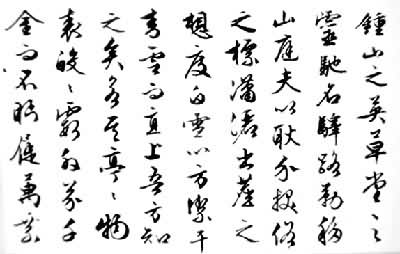 鍾山之英草堂之
靈馳名驛路勒移
山庭夫以耿介拔俗
之標瀟灑出塵之
想度白雪以方潔干
青雲而直上吾方知
之矣若其亭々物
表皎々霞外芥千
金而不眄屣萬乘